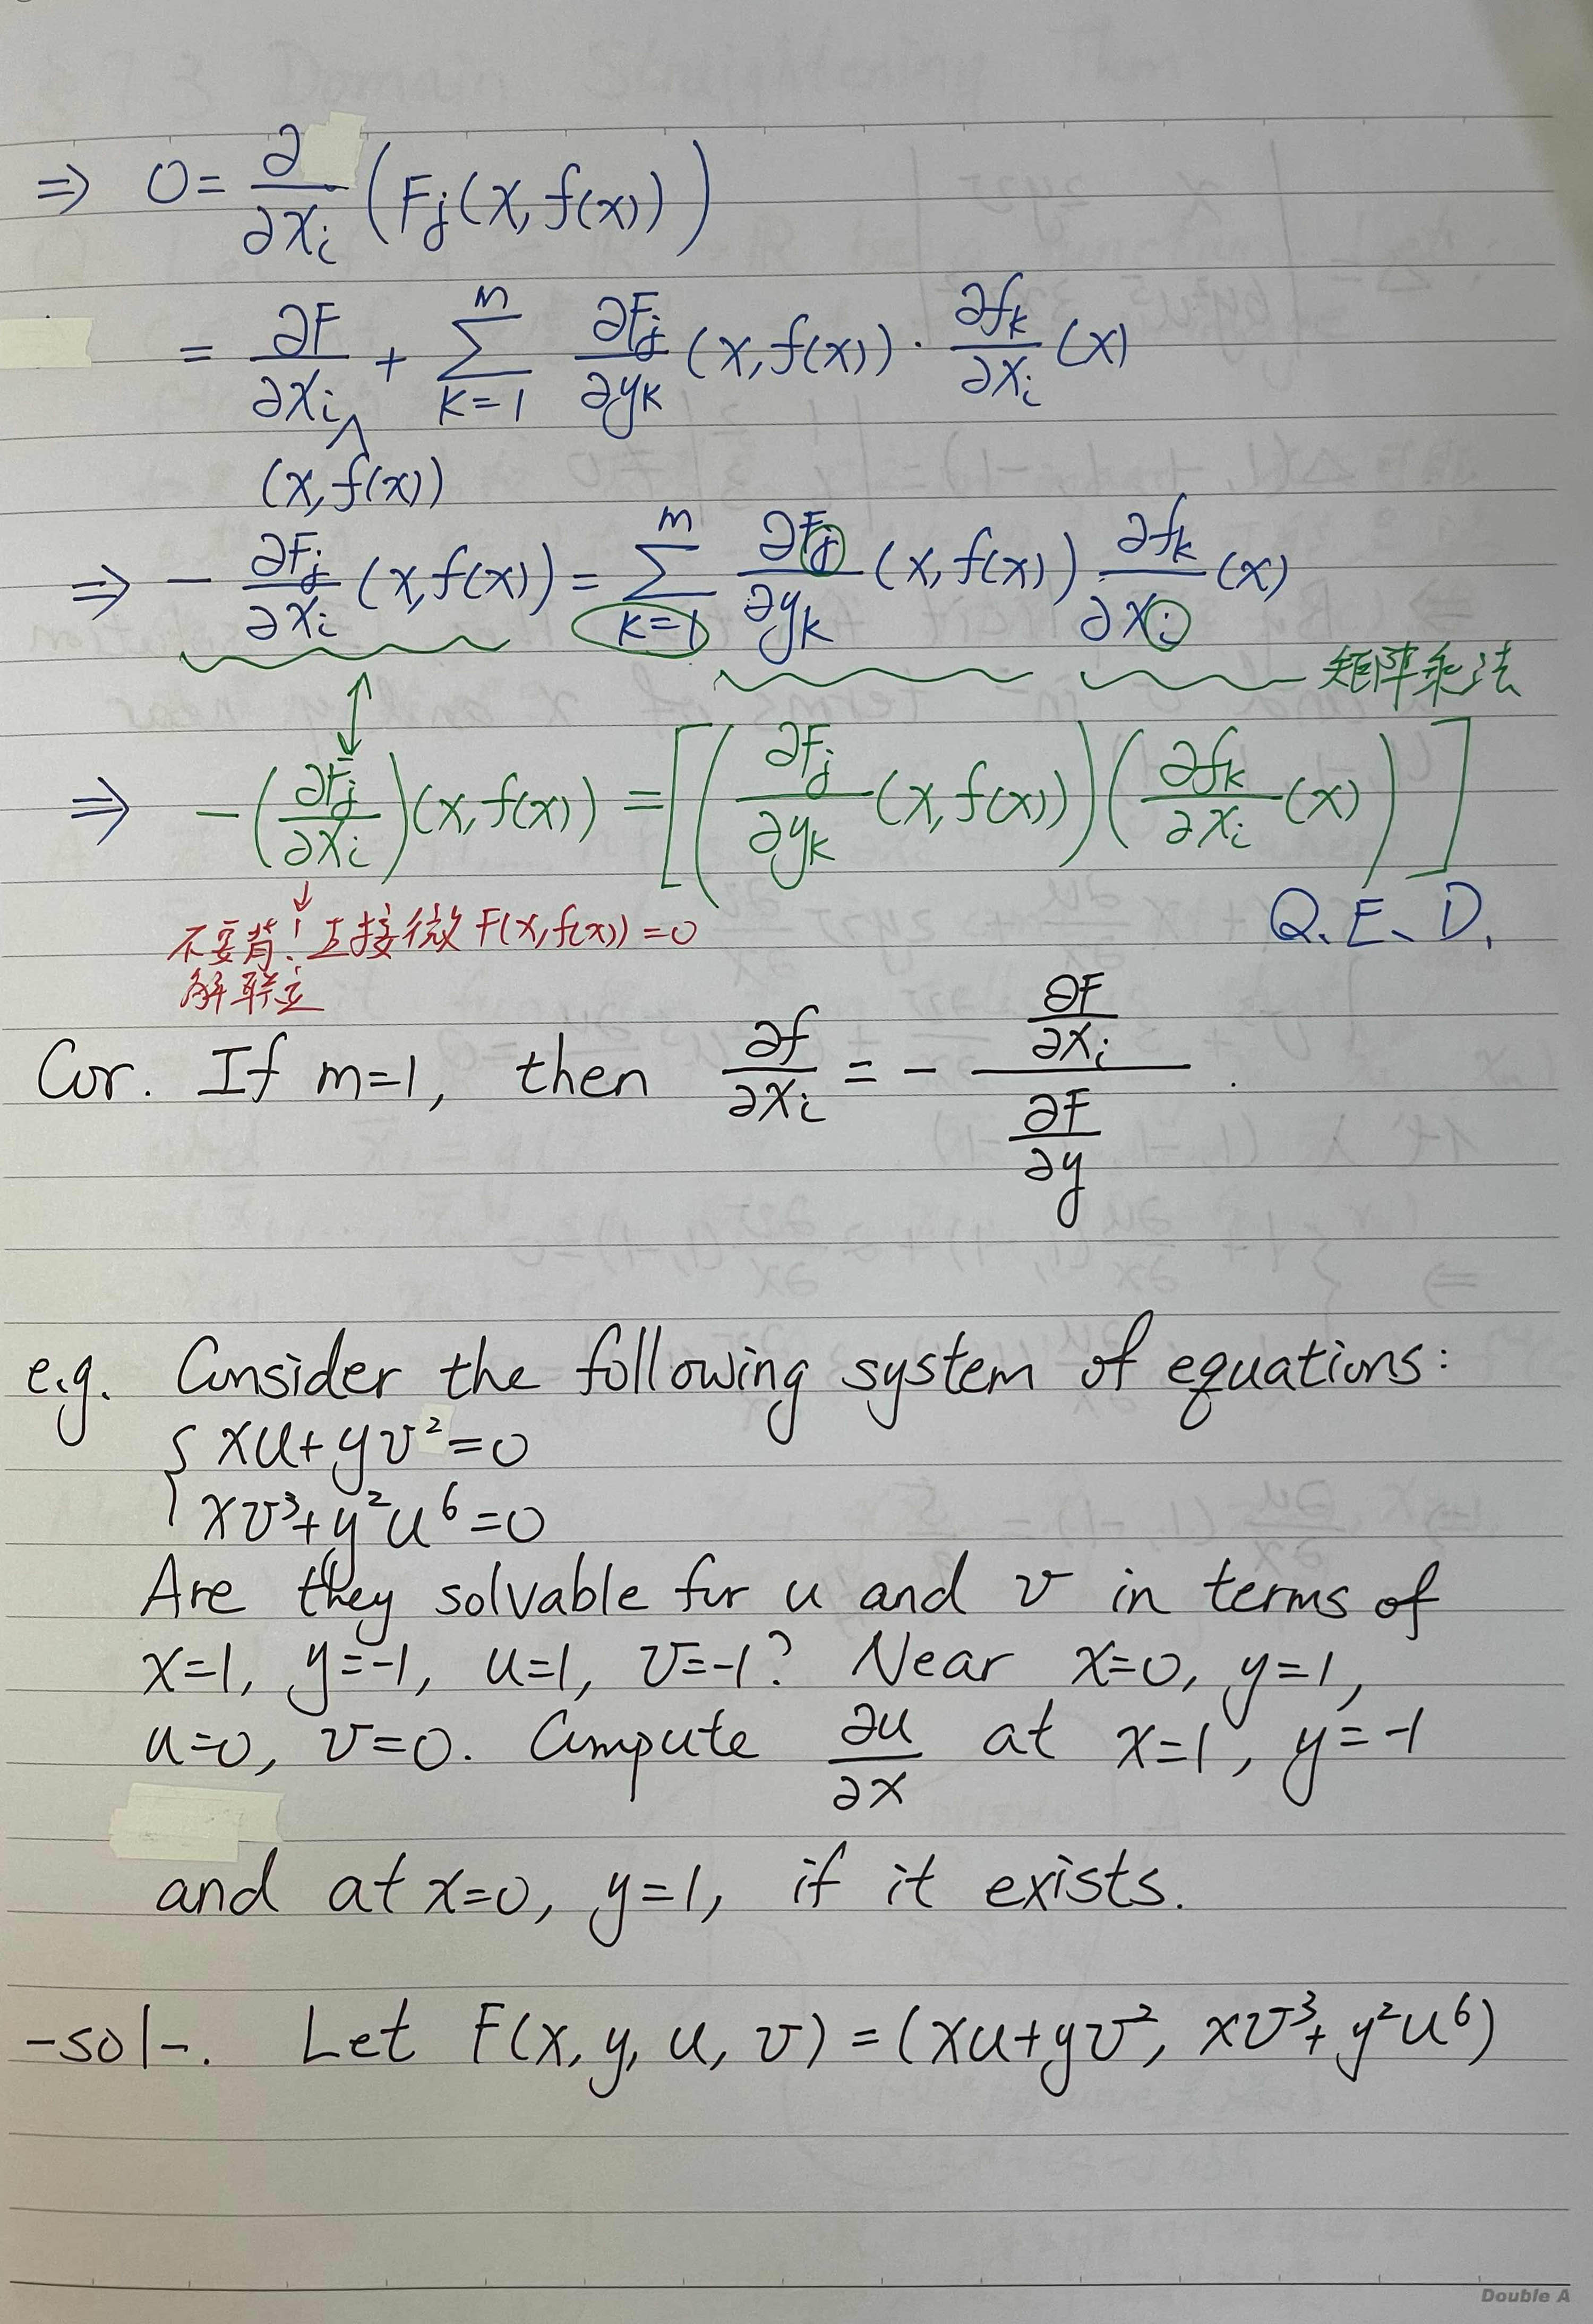 ⇒ 0 = ∂/∂xᵢ (Fⱼ(x, f(x)))
= ∂F/∂xᵢ + Σ_{k=1}^{m} ∂Fⱼ/∂yₖ (x, f(x)) · ∂fₖ/∂xᵢ (x)
(x, f(x))
⇒ - ∂Fⱼ/∂xᵢ (x, f(x)) = Σ_{k=1}^{m} ∂Fⱼ/∂yₖ (x, f(x)) ∂fₖ/∂xᵢ (x)
矩阵乘法
⇒ -(∂Fⱼ/∂xᵢ)(x, f(x)) = [(∂Fⱼ/∂yₖ (x, f(x)))(∂fₖ/∂xᵢ (x))]
Q.E.D.
不要背! 直接微 F(x, f(x)) = 0
解联立
Cor. If m=1, then ∂f/∂xᵢ = - (∂F/∂xᵢ)/(∂F/∂y) .
e.g. Consider the following system of equations:
{ xu + yv² = 0
xv³ + y²u⁶ = 0
Are they solvable for u and v in terms of
x=1, y=-1, u=1, v=-1? Near x=0, y=1,
u=0, v=0. Compute ∂u/∂x at x=1, y=-1
and at x=0, y=1, if it exists.
-sol-. Let F(x, y, u, v) = (xu+yv², xv³+y²u⁶)
Double A